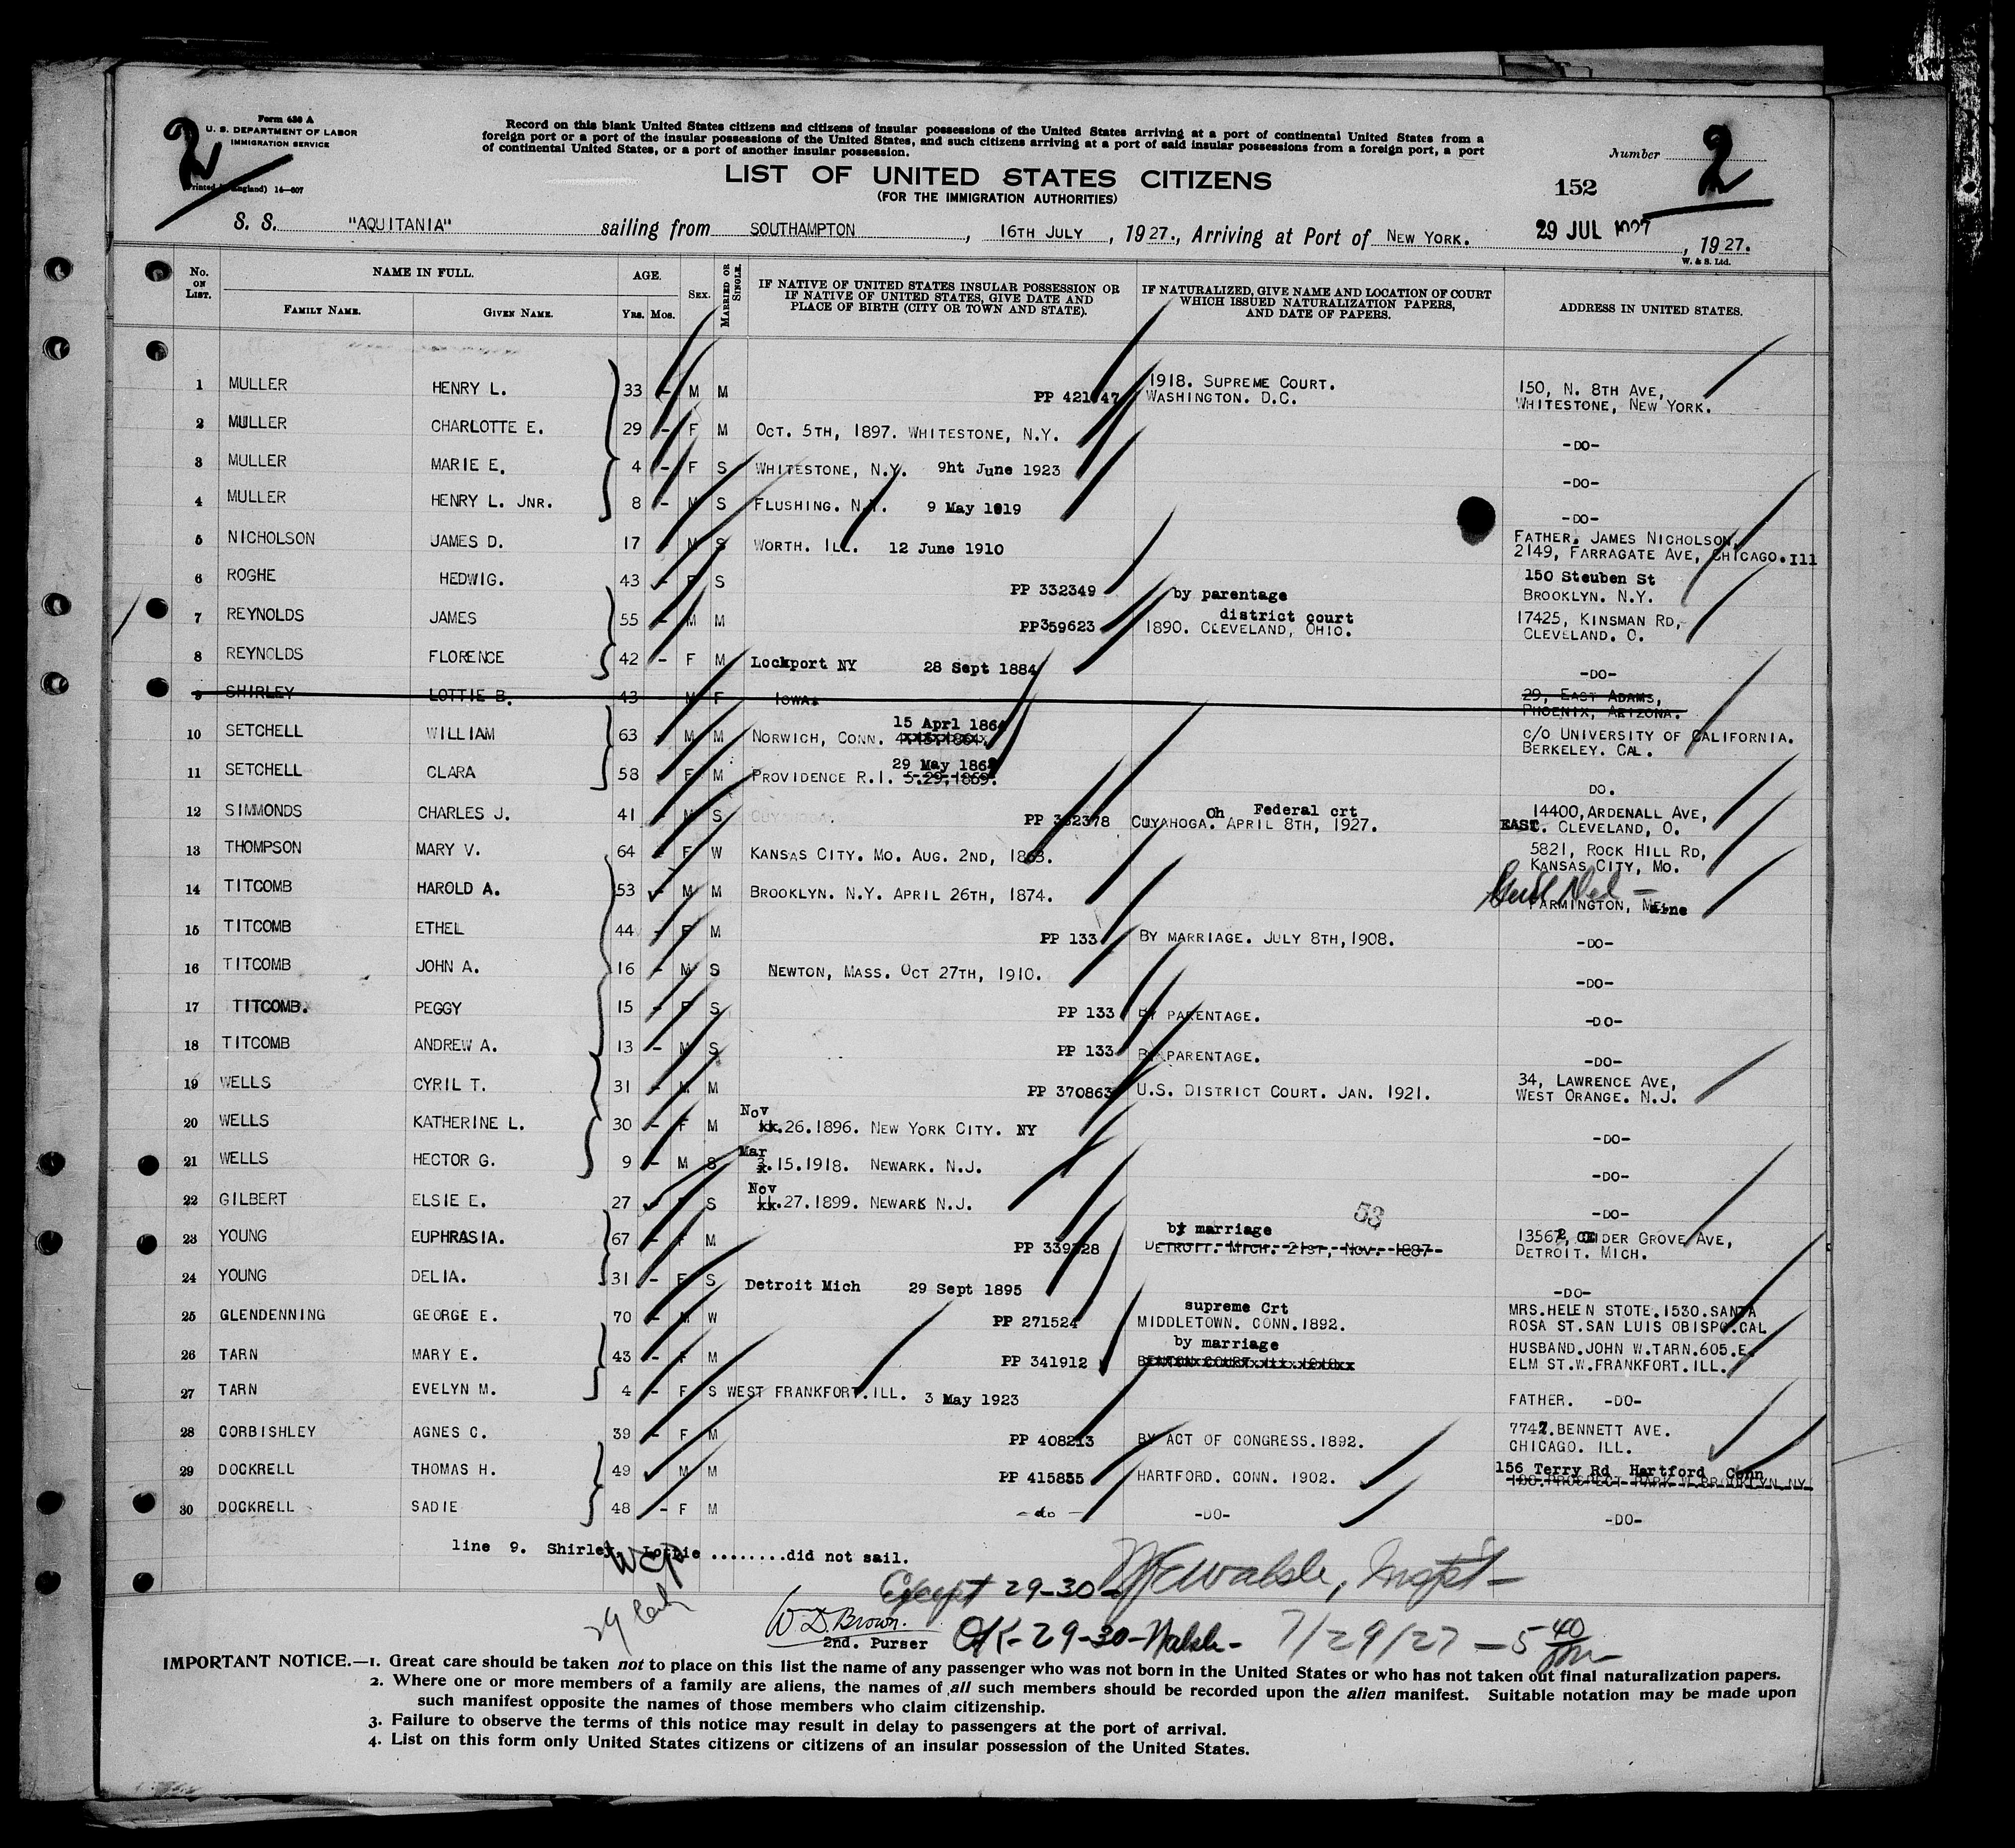 Form 630 A
U. S. DEPARTMENT OF LABOR
IMMIGRATION SERVICE
(Printed in England) 14—607
2
Record on this blank United States citizens and citizens of insular possessions of the United States arriving at a port of continental United States from a
foreign port or a port of the insular possessions of the United States, and such citizens arriving at a port of said insular possessions from a foreign port, a port
of continental United States, or a port of another insular possession.
Number 2
LIST OF UNITED STATES CITIZENS
(FOR THE IMMIGRATION AUTHORITIES)
152
S. S. "AQUITANIA" sailing from SOUTHAMPTON, 16TH JULY, 1927., Arriving at Port of NEW YORK. 29 JUL 1927, 1927.
W. & S. Ltd.
No. ON LIST. NAME IN FULL. AGE. SEX. MARRIED OR SINGLE. IF NATIVE OF UNITED STATES INSULAR POSSESSION OR IF NATIVE OF UNITED STATES, GIVE DATE AND PLACE OF BIRTH (CITY OR TOWN AND STATE). IF NATURALIZED, GIVE NAME AND LOCATION OF COURT WHICH ISSUED NATURALIZATION PAPERS, AND DATE OF PAPERS. ADDRESS IN UNITED STATES.
FAMILY NAME. GIVEN NAME. YRS. MOS.
1 MULLER HENRY L. 33 - M M PP 421 47 1918. SUPREME COURT. WASHINGTON. D.C. 150, N. 8TH AVE, WHITESTONE, NEW YORK.
2 MULLER CHARLOTTE E. 29 - F M OCT. 5TH, 1897. WHITESTONE, N.Y. -DO-
3 MULLER MARIE E. 4 - F S WHITESTONE, N.Y. 9ht June 1923 -DO-
4 MULLER HENRY L. JNR. 8 - M S FLUSHING. N.Y. 9 May 1919 -DO-
5 NICHOLSON JAMES D. 17 - M S WORTH. ILL. 12 June 1910 FATHER. JAMES NICHOLSON, 2149, FARRAGATE AVE, CHICAGO.Ill
6 ROGHE HEDWIG. 43 - F S PP 332349 by parentage 150 Steuben St BROOKLYN. N.Y.
7 REYNOLDS JAMES 55 - M M PP359623 district court 1890. CLEVELAND, OHIO. 17425, KINSMAN RD, CLEVELAND. O.
8 REYNOLDS FLORENCE 42 - F M Lockport NY 28 Sept 1884 -DO-
9 SHIRLEY LOTTIE B. 43 - M F IOWA. 29, EAST ADAMS, PHOENIX, ARIZONA.
10 SETCHELL WILLIAM 63 - M M NORWICH, CONN. 15 Aprl 1864 4.15.1864. c/o UNIVERSITY OF CALIFORNIA. BERKELEY. CAL.
11 SETCHELL CLARA 58 - F M PROVIDENCE R.I. 29 May 186 5.29.1869. DO.
12 SIMMONDS CHARLES J. 41 - M S PP 332378 Oh Federal crt CUYAHOGA. APRIL 8TH, 1927. 14400,ARDENALL AVE, EAST. CLEVELAND, O.
13 THOMPSON MARY V. 64 - F W KANSAS CITY. MO. AUG. 2ND, 1863. 5821, ROCK HILL RD, KANSAS CITY, MO.
14 TITCOMB HAROLD A. 53 M M BROOKLYN. N.Y. APRIL 26TH, 1874. FARMINGTON, Maine
15 TITCOMB ETHEL 44 - F M PP 133 BY MARRIAGE. JULY 8TH,1908. -DO-
16 TITCOMB JOHN A. 16 - M S NEWTON, MASS. OCT 27TH, 1910. -DO-
17 TITCOMB. PEGGY 15 - F S PP 133 BY PARENTAGE. -DO-
18 TITCOMB ANDREW A. 13 - M S PP 133 BY PARENTAGE. -DO-
19 WELLS CYRIL T. 31 - M M PP 370863 U.S. DISTRICT COURT. JAN. 1921. 34, LAWRENCE AVE, WEST ORANGE. N.J.
20 WELLS KATHERINE L. 30 - F M Nov xx.26.1896. NEW YORK CITY. NY -DO-
21 WELLS HECTOR G. 9 - M S Mar 3.15.1918. NEWARK. N.J. -DO-
22 GILBERT ELSIE E. 27 F S Nov 11.27.1899. NEWARK N.J. -DO-
53
23 YOUNG EUPHRASIA. 67 - F M PP 339328 by marriage DETROIT. MICH. 21ST, NOV. 1887 13567, CIDER GROVE AVE, DETROIT. MICH.
24 YOUNG DELIA. 31 - F S Detroit Mich 29 Sept 1895 -DO-
25 GLENDENNING GEORGE E. 70 - M W PP 271524 supreme Crt MIDDLETOWN. CONN.1892. MRS.HELEN STOTE.1530.SANTA ROSA ST.SAN LUIS OBISPO.CAL
26 TARN MARY E. 43 - F M PP 341912 by marriage HUSBAND.JOHN W.TARN.605.E. ELM ST.W.FRANKFORT.ILL.
27 TARN EVELYN M. 4 - F S WEST FRANKFORT.ILL. 3 May 1923 FATHER. -DO-
28 CORBISHLEY AGNES C. 39 - F M PP 408213 BY ACT OF CONGRESS.1892. 7742.BENNETT AVE. CHICAGO. ILL.
29 DOCKRELL THOMAS H. 49 M M PP 415855 HARTFORD. CONN. 1902. 156 Terry Rd Hartford Conn PROSPECT PARK W.BROOKLYN.NY
30 DOCKRELL SADIE 48 - F M - do - -DO- -DO-
line 9. Shirley, Lottie ........did not sail.
Except 29-30- Walsh, Inspt-
W. D. Brown.
2nd. Purser
OK-29-30-Walsh- 7/29/27 - 5 40
IMPORTANT NOTICE.—1. Great care should be taken not to place on this list the name of any passenger who was not born in the United States or who has not taken out final naturalization papers.
2. Where one or more members of a family are aliens, the names of all such members should be recorded upon the alien manifest. Suitable notation may be made upon
such manifest opposite the names of those members who claim citizenship.
3. Failure to observe the terms of this notice may result in delay to passengers at the port of arrival.
4. List on this form only United States citizens or citizens of an insular possession of the United States.